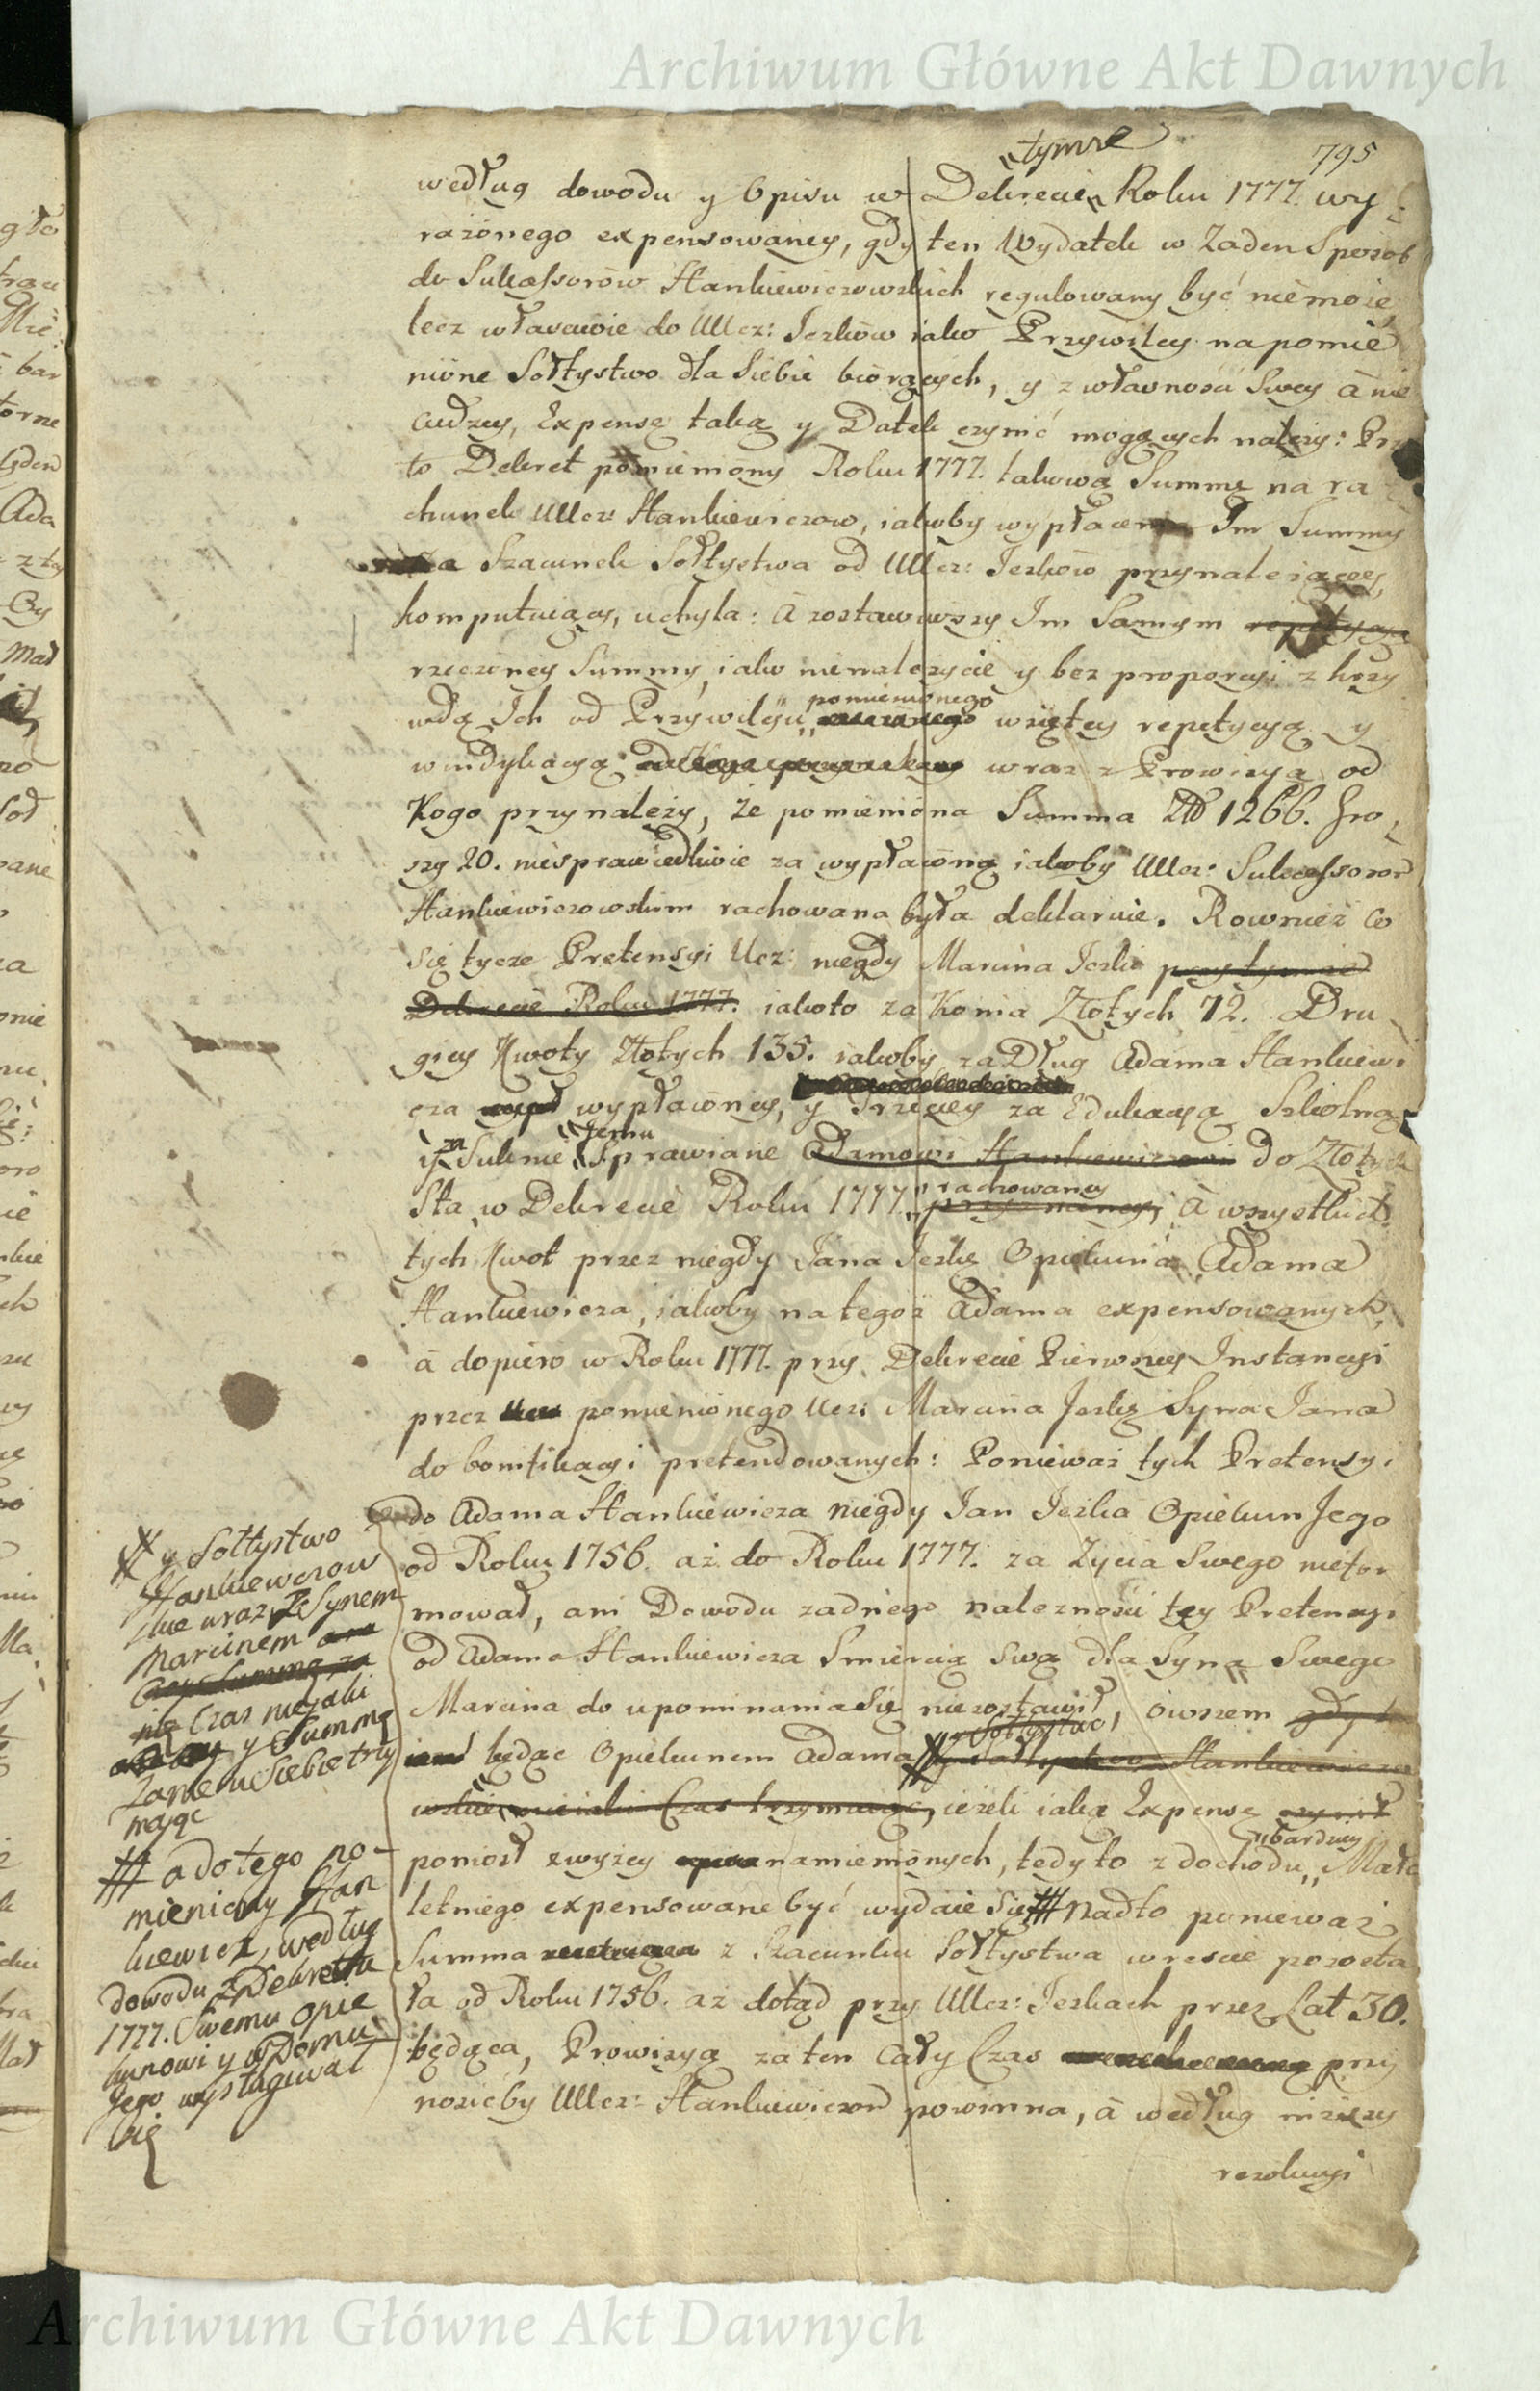 Archiwum Główne Akt Dawnych
795
tymże
według dowodu y Opisu w Dekrecie Roku 1777. wy
rażonego expensowaney, gdy ten Wydatek w Żaden Sposob
do Sukcessorow Hankiewiczowskich regulowany być niemoże,
lecz właściwie do UUcz: Jeżkow iako Przywiley na pomie
nione Sołtystwo dla Siebie biorących, y z własności Swey à nie
cudzey, Expensę taką y Datek czynić mogących należy: Prze
to Dekret pomieniony Roku 1777. takową Summę na ra
chunek UUcz: Hankiewiczow, iakoby wypłaconą Im Summy
za Szacunek Sołtystwa od UUcz: Jeżkow przynależącey,
komputuiący, uchyla: à zostawiwszy Im Samym repetycyą
rzeczoney Summy, iako nienależycie y bez proporcyi z krzy
pomienionego
wdą Ich od Przywileju wziętey repetycyą y
windykacyą wraz z Prowizyą od
Kogo przynależy, że pomieniona Summa Zł 1266. Gro
szy 20. niesprawiedliwie za wypłaconą iakoby UUcz: Sukcessorom
Hankiewiczowskim rachowana była deklaruie. Rownież co
się tycze Pretensyi Ucz: niegdy Marcina Jeżki przy tymże
Dekrecie Roku 1777. iakoto za Konia Złotych 72. Dru
giey Kwoty Złotych 135. iakoby za Dług Adama Hankiewi
cza wypłaconey, y Trzeciey za Edukacyą Szkolną
za Jemu
y Suknie Sprawiane Adamowi Hankiewiczowi do Złotych
rachowaney
Sta, w Dekrecie Roku 1777. à wszystkich
tych Kwot przez niegdy Jana Jeżkę Opiekuna Adama
Hankiewicza, iakoby na tegoż Adama expensowanych,
à dopiero w Roku 1777. przy Dekrecie Pierwszey Instancyi
przez pomienionego Ucz: Marcina Jeżkę Syna Jana
do bonifikacyi pretendowanych: Ponieważ tych Pretensyi
do Adama Hankiewicza niegdy Jan Jeżka Opiekun Jego
od Roku 1756. aż do Roku 1777. za Życia Swego niefor
mował, ani Dowodu żadnego należności tey Pretensyi
od Adama Hankiewicza Smiercią Swą dla Syna Swego
Marcina do upominania się niezostawił, owszem gdy
Sołtystwo
będąc Opiekunem Adama y Sołtystwo Hankiewiczo
wskie, nieiaki Czas trzymaiąc, ieżeli iaką Expensę czynił
bardziey
poniosł zwyżey namienionych, tedy to z dochodu Mało
letniego expensowane być wydaie się # Nadto ponieważ
Summa z Szacunku Sołtystwa w resie pozosta
ła od Roku 1756. aż dotąd przy UUcz: Jeżkach przez Lat 30.
będąca, Prowizyą za ten cały Czas przy
nosićby UUcz: Hankiewiczom powinna, à według niższey
rezolucyi
y Sołtystwo
Hankiewiczow
skie wraz z Synem
Marcinem
Czas nieiaki
y Summę
zanie u Siebie trzy
maiąc
# a do tego po-
mieniony Han
kiewicz, według
dowodu z Dekretu
1777. Swemu opie
kunowi y w Domu
Jego wysługiwał
się
Archiwum Główne Akt Dawnych